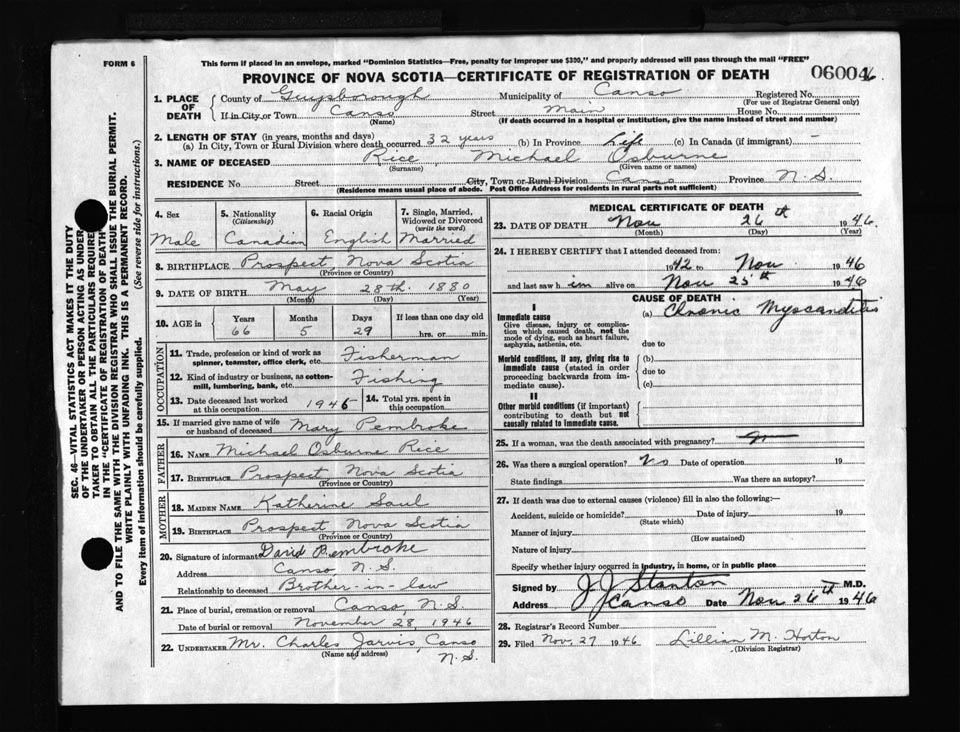 FORM 6
This form if placed in an envelope, marked "Dominion Statistics—Free, penalty for improper use $300," and properly addressed will pass through the mail "FREE"
PROVINCE OF NOVA SCOTIA—CERTIFICATE OF REGISTRATION OF DEATH
06004
1. PLACE OF DEATH
County of Guysborough Municipality of Canso Registered No.
(For use of Registrar General only)
If in City or Town Canso Street Main House No.
(Name) (If death occurred in a hospital or institution, give the name instead of street and number)
2. LENGTH OF STAY (in years, months and days)
(a) In City, Town or Rural Division where death occurred 32 years (b) In Province Life (c) In Canada (if immigrant) —
3. NAME OF DECEASED Rice Michael Osburne
(Surname) (Given name or names)
RESIDENCE No. Street City, Town or Rural Division Canso Province N.S.
(Residence means usual place of abode. Post Office Address for residents in rural parts not sufficient)
4. Sex 5. Nationality (Citizenship) 6. Racial Origin 7. Single, Married, Widowed or Divorced (write the word)
Male Canadian English Married
8. BIRTHPLACE Prospect, Nova Scotia
(Province or Country)
9. DATE OF BIRTH May 28th. 1880
(Month) (Day) (Year)
10. AGE in Years Months Days If less than one day old
66 5 29 hrs. or min.
OCCUPATION
11. Trade, profession or kind of work as spinner, teamster, office clerk, etc. Fisherman
12. Kind of industry or business, as cotton-mill, lumbering, bank, etc. Fishing
13. Date deceased last worked at this occupation 1945 14. Total yrs. spent in this occupation
15. If married give name of wife or husband of deceased Mary Pembroke
FATHER
16. NAME Michael Osburne Rice
17. BIRTHPLACE Prospect Nova Scotia
(Province or Country)
MOTHER
18. MAIDEN NAME Katherine Saul
19. BIRTHPLACE Prospect, Nova Scotia
(Province or Country)
20. Signature of informant David Pembroke
Address Canso N.S.
Relationship to deceased Brother-in-law
21. Place of burial, cremation or removal Canso, N.S.
Date of burial or removal November 28, 1946
22. UNDERTAKER Mr. Charles Jarvis, Canso
(Name and address) N.S.
MEDICAL CERTIFICATE OF DEATH
23. DATE OF DEATH Nov 26th 1946
(Month) (Day) (Year)
24. I HEREBY CERTIFY that I attended deceased from:
1942 to Nov 1946
and last saw him alive on Nov 25th 1946
CAUSE OF DEATH
I
Immediate cause
Give disease, injury or complication which caused death, not the mode of dying, such as heart failure, asphyxia, asthenia, etc.
(a) Chronic Myocarditis
due to
Morbid conditions, if any, giving rise to immediate cause (stated in order proceeding backwards from immediate cause).
(b)
due to
(c)
II
Other morbid conditions (if important) contributing to death but not causally related to immediate cause.
25. If a woman, was the death associated with pregnancy?
26. Was there a surgical operation? No Date of operation 19
State findings Was there an autopsy?
27. If death was due to external causes (violence) fill in also the following:—
Accident, suicide or homicide? Date of injury 19
(State which)
Manner of injury
(How sustained)
Nature of injury
Specify whether injury occurred in industry, in home, or in public place
Signed by J J Stanton M.D.
Address Canso Date Nov 26th 1946
28. Registrar's Record Number
29. Filed Nov. 27 1946 Lillian M. Horton
(Division Registrar)
SEC. 46—VITAL STATISTICS ACT MAKES IT THE DUTY
OF THE UNDERTAKER OR PERSON ACTING AS UNDER-
TAKER TO OBTAIN ALL THE PARTICULARS REQUIRED
IN THE "CERTIFICATE OF REGISTRATION OF DEATH"
AND TO FILE THE SAME WITH THE DIVISION REGISTRAR WHO SHALL ISSUE THE BURIAL PERMIT.
WRITE PLAINLY WITH UNFADING INK. THIS IS A PERMANENT RECORD.
Every item of information should be carefully supplied. (See reverse side for instructions.)